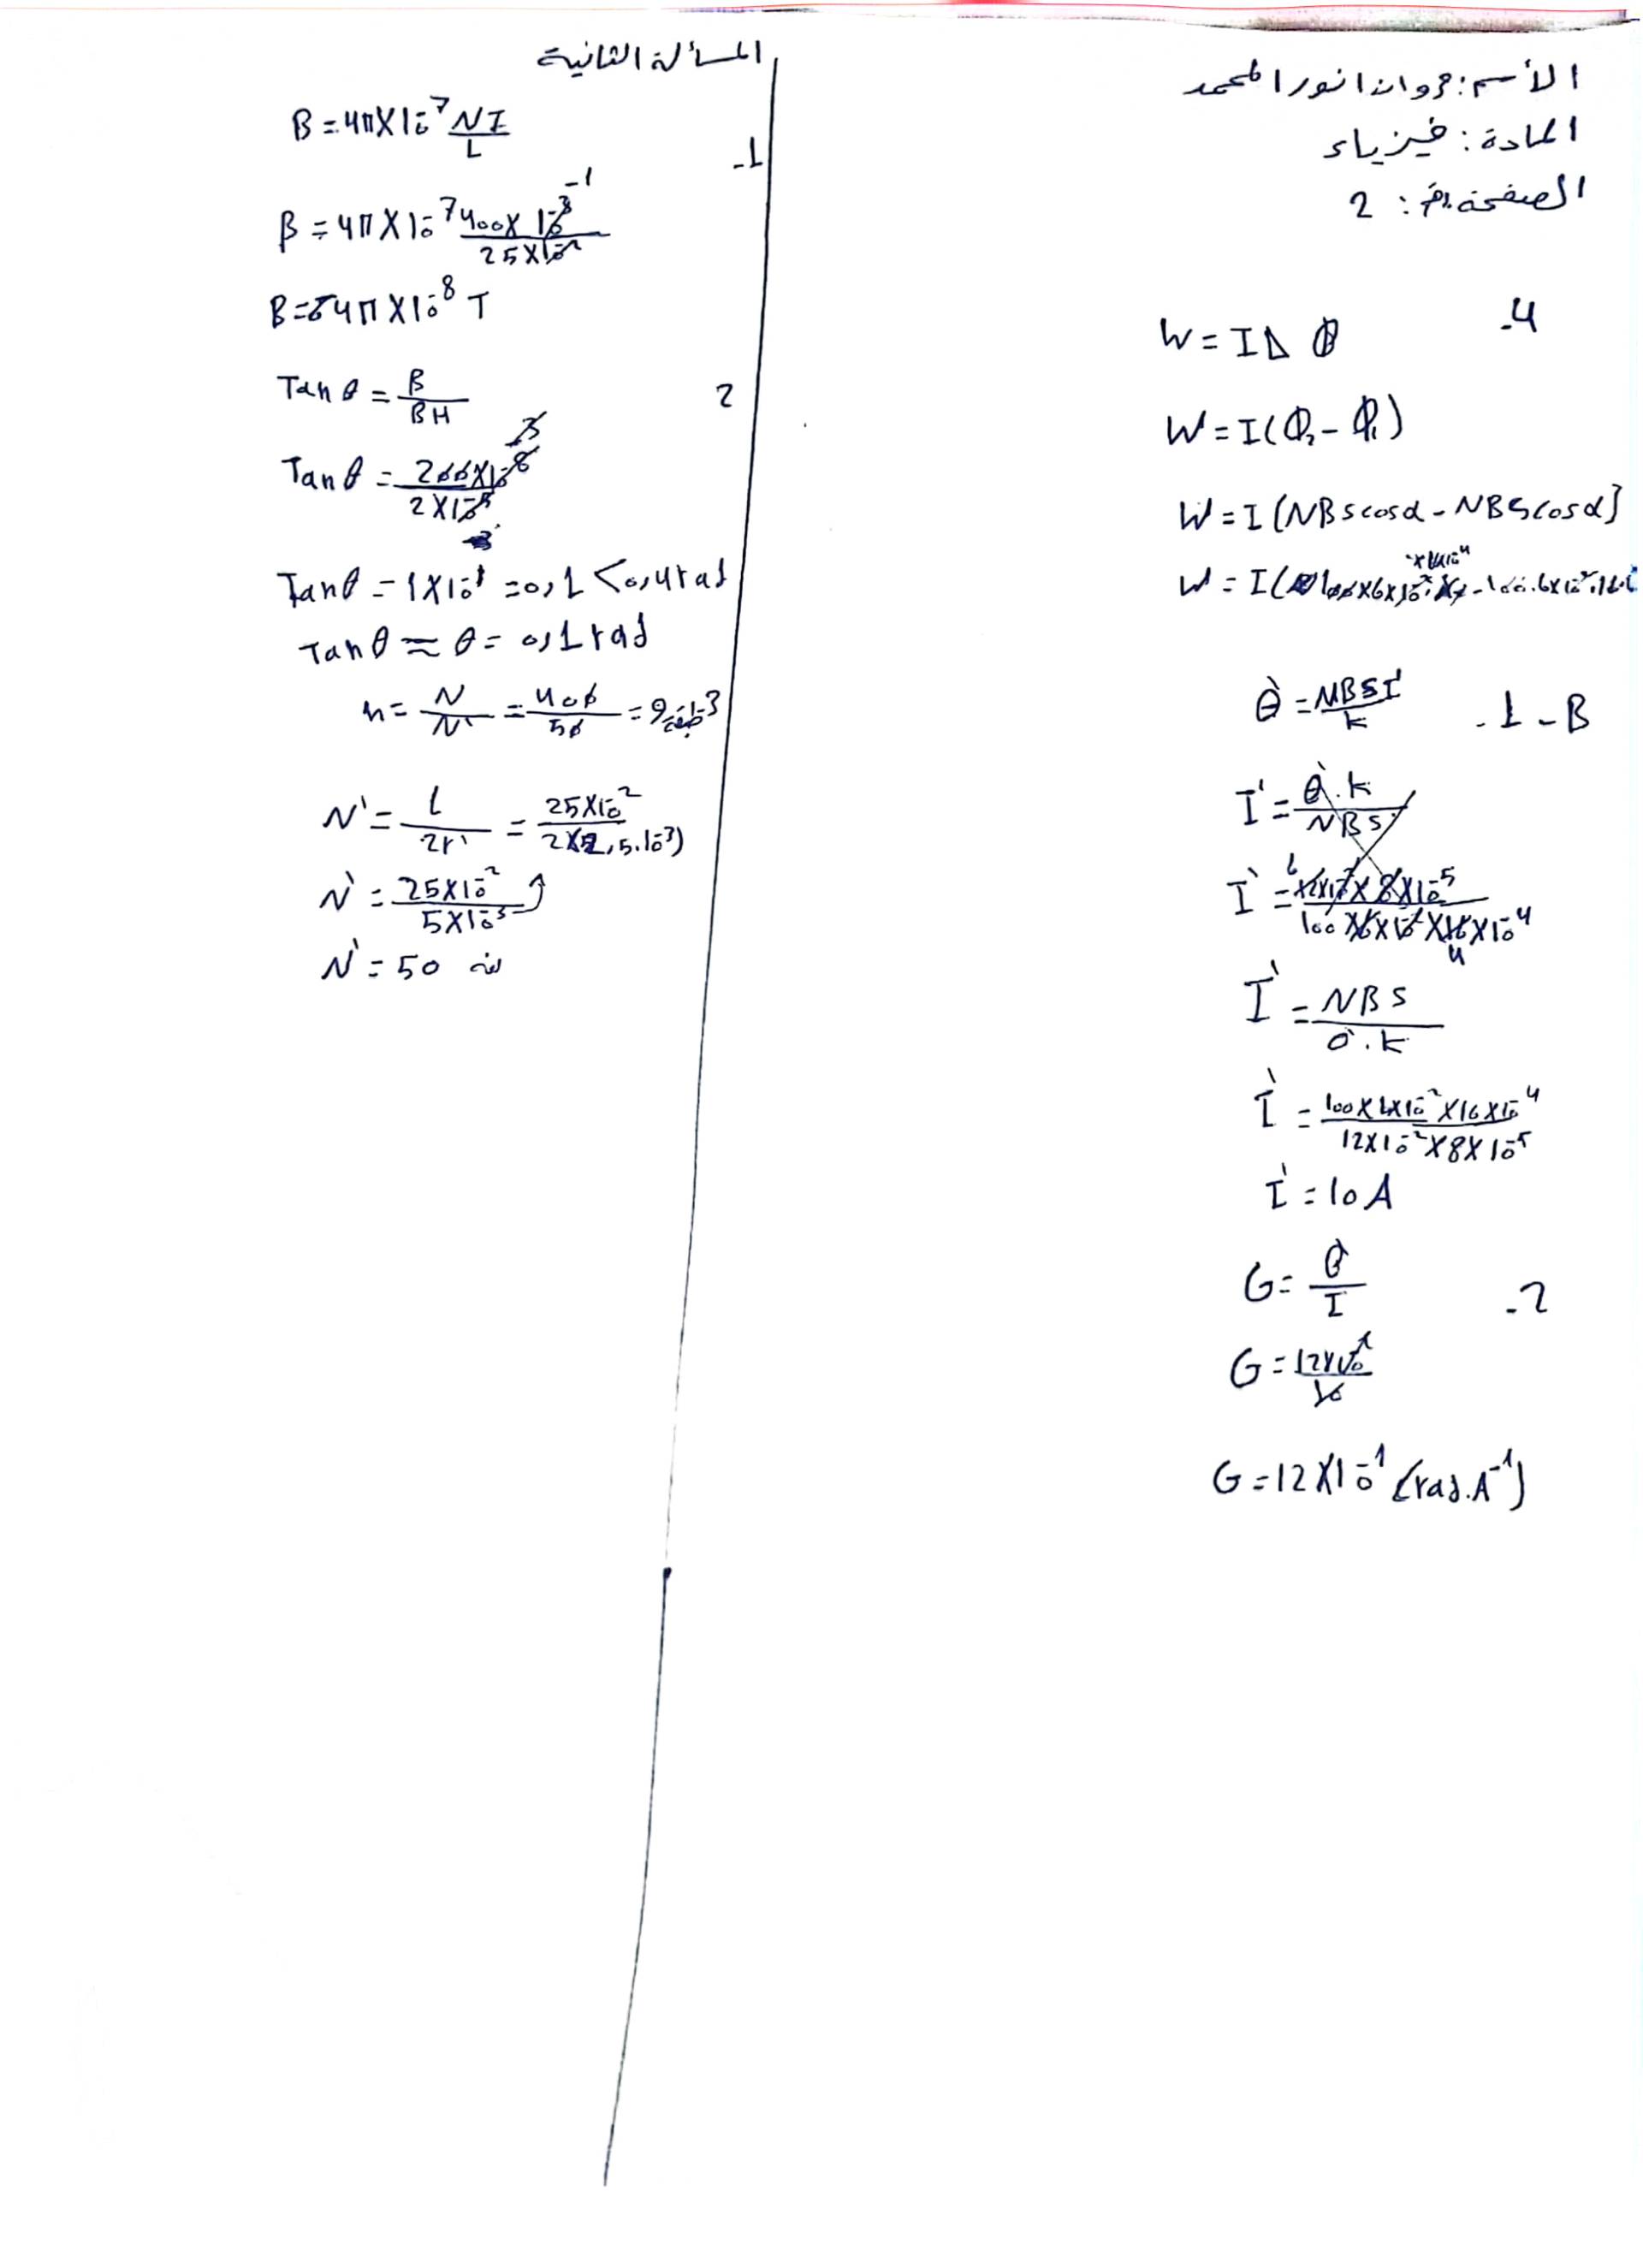 الأسم: جوان انور المحمد
المادة: فيزياء
الصفحة رقم: 2
4-
W = I Δ Φ
W = I(Φ₂ - Φ₁)
W = I (NBS cosα - NBS cosα)
W = I(
B - 1 -
θ' = NBSI' / k
I' = θ'.k / NBS
I' = 12×10⁻² × 8×10⁻⁵ / 100 × 6×10⁻² × 16×10⁻⁴
I' = NBS / θ'.k
I' = 100×6×10⁻²×16×10⁻⁴ / 12×10⁻²×8×10⁻⁵
I' = 10 A
2-
G = θ' / I
G = 12×10⁻² / 10
G = 12×10⁻¹ (rad.A⁻¹)
المسألة الثانية
1-
B = 4π×10⁻⁷ NI / L
B = 4π×10⁻⁷ 400× 10⁻³ / 25×10⁻²
B = 64π×10⁻⁸ T
2
Tan θ = B / BH
Tan θ = 200×10⁻⁸ / 2×10⁻⁵
Tanθ = 1×10⁻¹ = 0,1 < 0,4 rad
Tan θ ≈ θ = 0,1 rad
n = N / N' = 400 / 50 = 9 طبقة
3-
N' = L / 2r' = 25×10⁻² / 2×(2,5.10⁻³)
N' = 25×10⁻² / 5×10⁻³
N' = 50 لفة